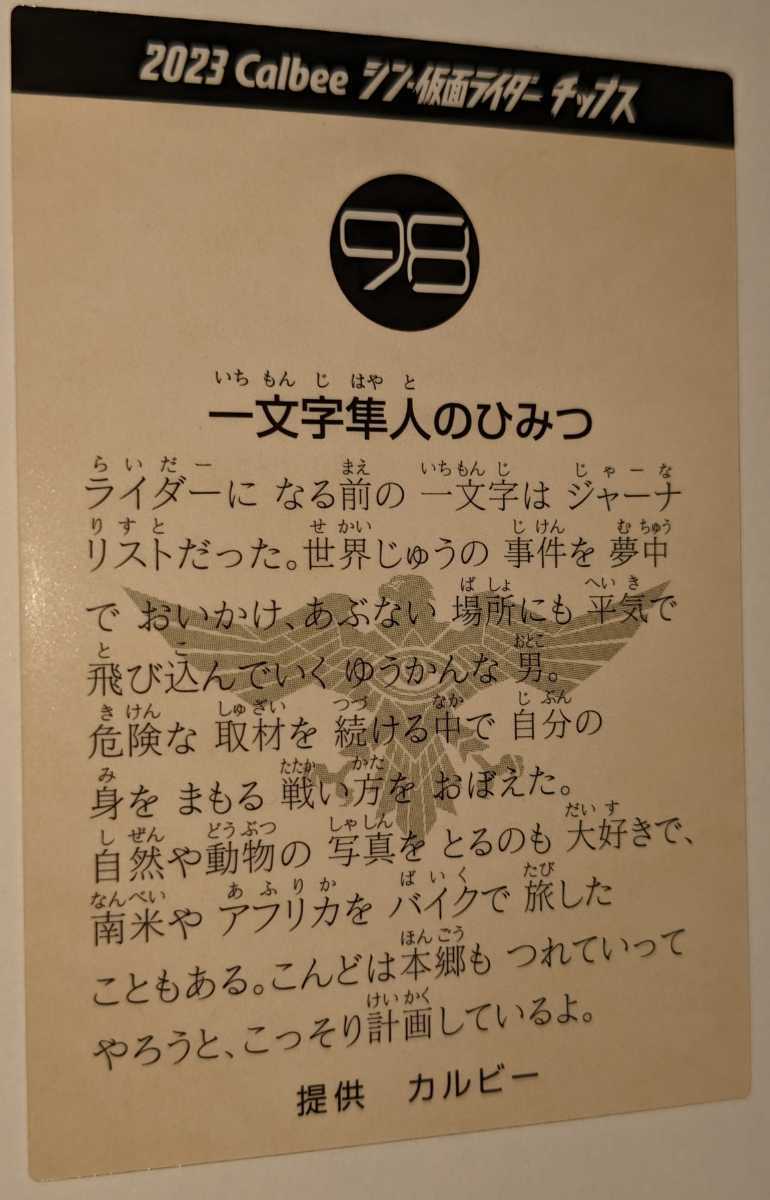 2023 Calbee シン・仮面ライダー チップス
98
いち もん じ はや と
一文字隼人のひみつ
らいだー まえ いちもん じ じゃーな
ライダーに なる前の 一文字は ジャーナ
りすと せ かい じ けん む ちゅう
リストだった。世界じゅうの 事件を 夢中
ば しょ へい き
で おいかけ、あぶない 場所にも 平気で
と こ おとこ
飛び込んでいく ゆうかんな 男。
き けん しゅざい つづ なか じ ぶん
危険な 取材を 続ける中で 自分の
み たたか かた
身を まもる 戦い方を おぼえた。
し ぜん どうぶつ しゃしん だい す
自然や動物の 写真を とるのも 大好きで、
なんべい あふりか ばいく たび
南米や アフリカを バイクで 旅した
ほんごう
こともある。こんどは本郷も つれていって
けい かく
やろうと、こっそり計画しているよ。
提供 カルビー